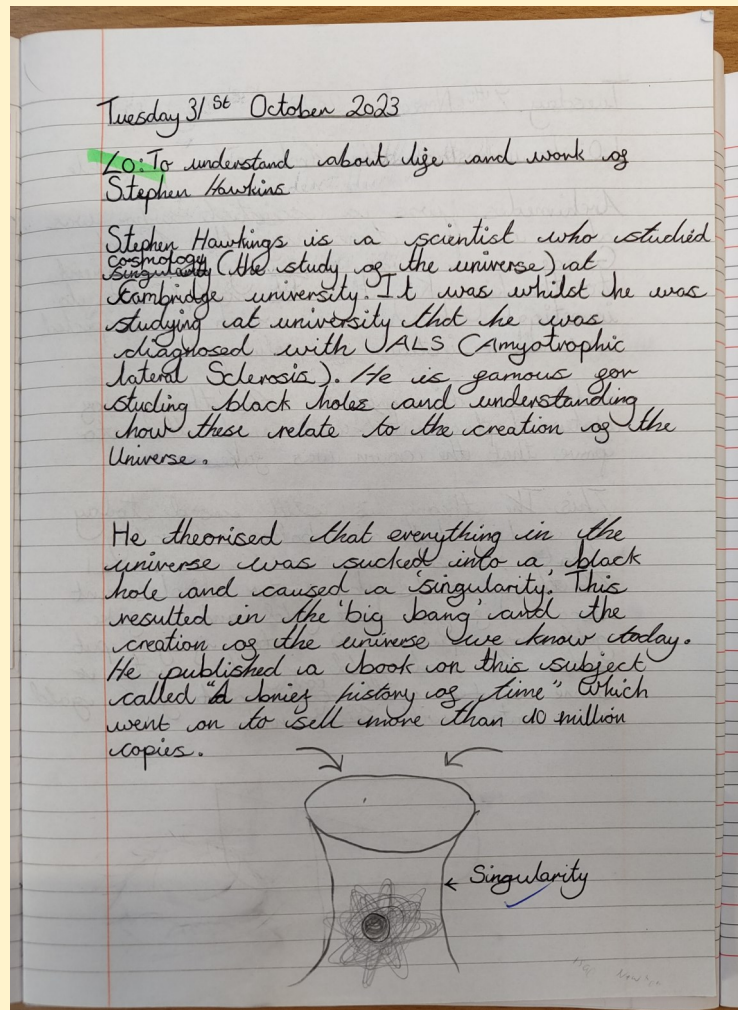 Tuesday 31st October 2023
Lo: To understand about life and work of
Stephen Hawkins
Stephen Hawkings is a scientist who studied
cosmology
singularity (the study of the universe) at
Cambridge university. It was whilst he was
studying at university that he was
diagnosed with ALS (Amyotrophic
lateral Sclerosis). He is famous for
studing black holes and understanding
how these relate to the creation of the
Universe.
He theorised that everything in the
universe was sucked into a black
hole and caused a 'singularity'. This
resulted in the 'big bang' and the
creation of the universe we know today.
He published a book on this subject
called "A brief history of time" which
went on to sell more than 10 million
copies.
Singularity